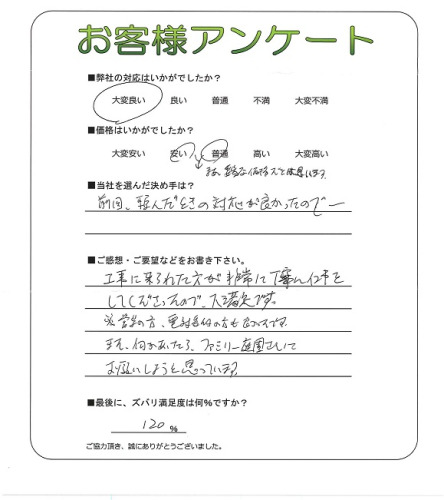 お客様アンケート
■弊社の対応はいかがでしたか?
大変良い 良い 普通 不満 大変不満
■価格はいかがでしたか?
大変安い 安い 普通 高い 大変高い
まあ、価格だとは思います。
■当社を選んだ決め手は?
前回、頼んだときの対応が良かったので
■ご感想・ご要望などをお書き下さい。
工事に来られた方が非常に丁寧な仕事を
してくださったので、大満足です。
営業の方、電話受付の方も良かったです。
また、何かあったら、ファミリー庭園さんに
お願いしようと思っています。
■最後に、ズバリ満足度は何%ですか?
120 %
ご協力頂き、誠にありがとうございました。